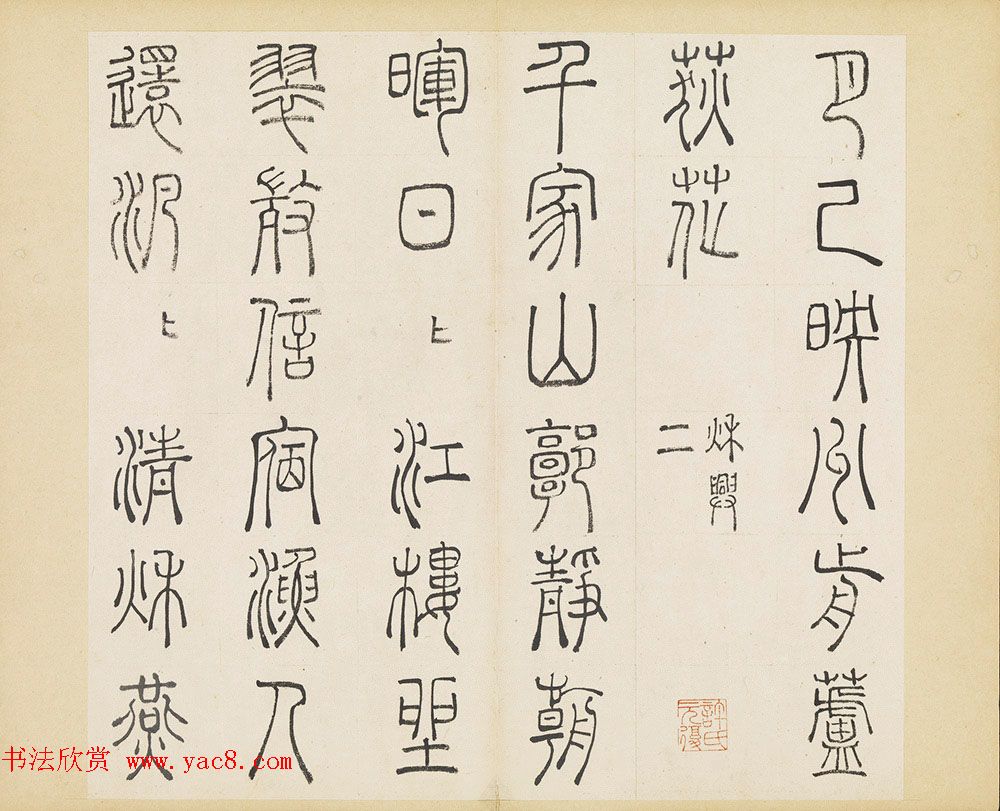 月已映州前蘆
荻花
秋興
二
許氏
元復
千家山郭靜朝
暉日〻江樓坐
翠微信宿漁人
還汎〻清秋燕
书法欣赏 www.yac8.com